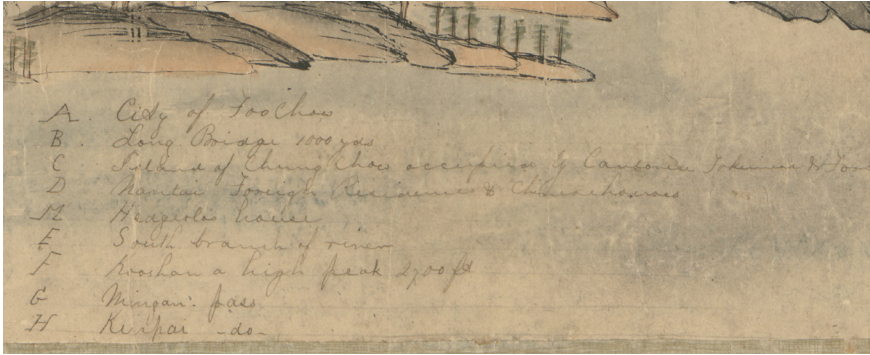 A. City of Foo Chow
B. Long Bridge 1000 yds
C Island of Chung Chow occupied by Cantonese
D Nantai Foreign Residences & Chinese houses
M house
E South branch of river
F Kooshan a high peak 2700 ft
G Mingan: pass
H Kinpai -do-